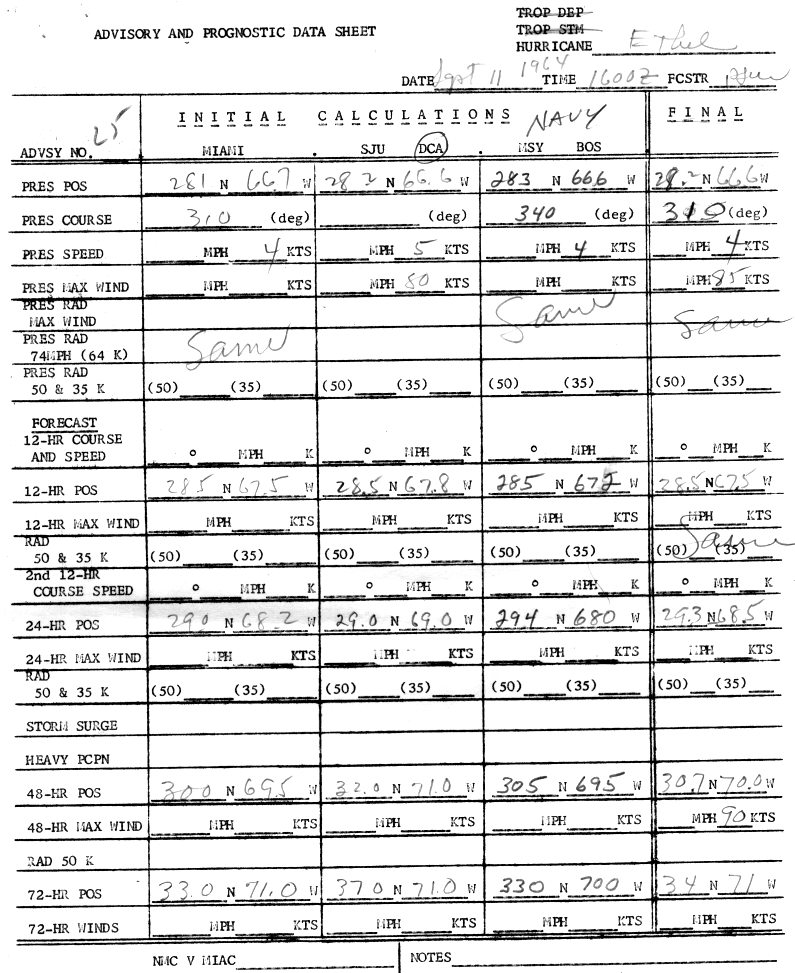 ADVISORY AND PROGNOSTIC DATA SHEET
TROP DEP
TROP STM
HURRICANE Ethel
DATE Sept 11 1964 TIME 1600Z FCSTR
INITIAL CALCULATIONS FINAL
NAVY
ADVSY NO. 25 MIAMI . SJU DCA . MSY BOS
PRES POS 281 N 667 W 28.2 N 66.6 W 283 N 666 W 28.2 N 66.6 W
PRES COURSE 310 (deg) (deg) 340 (deg) 310 (deg)
PRES SPEED MPH 4 KTS MPH 5 KTS MPH 4 KTS MPH 4 KTS
PRES MAX WIND MPH KTS MPH 80 KTS MPH KTS MPH 85 KTS
PRES RAD
MAX WIND Same Same
PRES RAD Same
74MPH (64 K)
PRES RAD
50 & 35 K (50) (35) (50) (35) (50) (35) (50) (35)
FORECAST
12-HR COURSE
AND SPEED ° MPH K ° MPH K ° MPH K ° MPH K
12-HR POS 28.5 N 67.5 W 28.5 N 67.8 W 285 N 672 W 28.5 N 67.5 W
12-HR MAX WIND MPH KTS MPH KTS MPH KTS MPH KTS
RAD Same
50 & 35 K (50) (35) (50) (35) (50) (35) (50) (35)
2nd 12-HR
COURSE SPEED ° MPH K ° MPH K ° MPH K ° MPH K
24-HR POS 29.0 N 68.2 W 29.0 N 69.0 W 294 N 680 W 29.3 N 68.5 W
24-HR MAX WIND MPH KTS MPH KTS MPH KTS MPH KTS
RAD
50 & 35 K (50) (35) (50) (35) (50) (35) (50) (35)
STORM SURGE
HEAVY PCPN
48-HR POS 300 N 695 W 32.0 N 71.0 W 305 N 695 W 30.7 N 70.0 W
48-HR MAX WIND MPH KTS MPH KTS MPH KTS MPH 90 KTS
RAD 50 K
72-HR POS 33.0 N 71.0 W 37.0 N 71.0 W 330 N 700 W 34 N 71 W
72-HR WINDS MPH KTS MPH KTS MPH KTS MPH KTS
NMC V MIAC NOTES